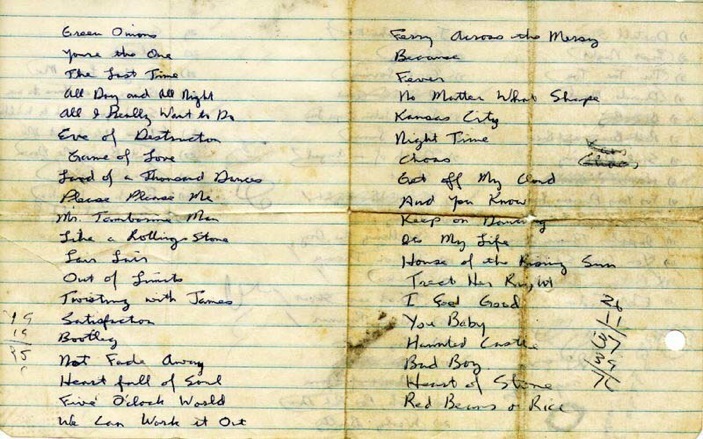 Green Onions
You're the One
The Last Time
All Day and All Night
All I Really Want to Do
Eve of Destruction
Game of Love
Land of a Thousand Dances
Please Please Me
Mr. Tambourine Man
Like a Rolling Stone
Liar Liar
Out of Limits
Twisting with James
Satisfaction
Bootleg
Not Fade Away
Heart full of Soul
Five O'clock World
We Can Work it Out
Ferry Across the Mersey
Because
Fever
No Matter What Shape
Kansas City
Night Time
Choas
Get off My Cloud
And You Know
Keep on Dancing
Its My Life
House of the Rising Sun
Treat Her Right
I Feel Good
You Baby
Haunted Castle
Bad Boy
Heart of Stone
Red Beans & Rice